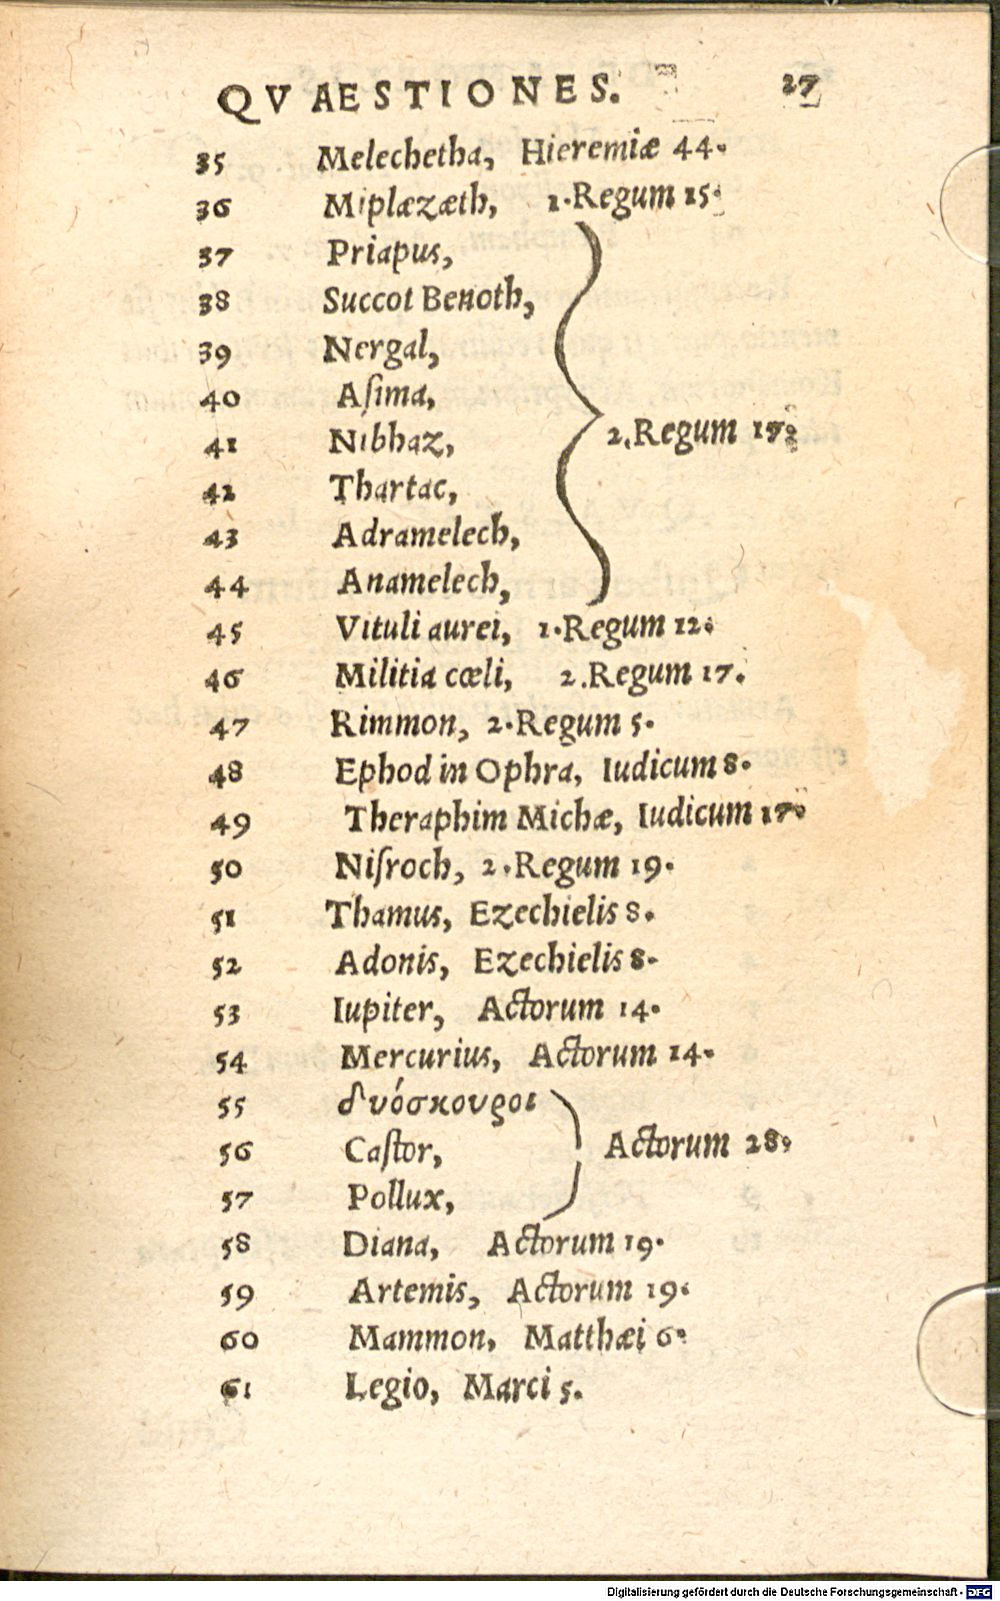 QVAESTIONES. 27
35 Melechetha, Hieremiæ 44.
36 Miplæzæth, 1. Regum 15.
37 Priapus,
38 Succot Benoth,
39 Nergal,
40 Aſima,
41 Nibhaz, 2. Regum 17.
42 Thartac,
43 Adramelech,
44 Anamelech,
45 Vituli aurei, 1. Regum 12.
46 Militia cœli, 2. Regum 17.
47 Rimmon, 2. Regum 5.
48 Ephod in Ophra, Iudicum 8.
49 Theraphim Michæ, Iudicum 17.
50 Niſroch, 2. Regum 19.
51 Thamus, Ezechielis 8.
52 Adonis, Ezechielis 8.
53 Iupiter, Actorum 14.
54 Mercurius, Actorum 14.
55 δυόσκουροι
56 Caſtor, Actorum 28.
57 Pollux,
58 Diana, Actorum 19.
59 Artemis, Actorum 19.
60 Mammon, Matthæi 6.
61 Legio, Marci 5.
Digitalisierung gefördert durch die Deutsche Forschungsgemeinschaft - DFG